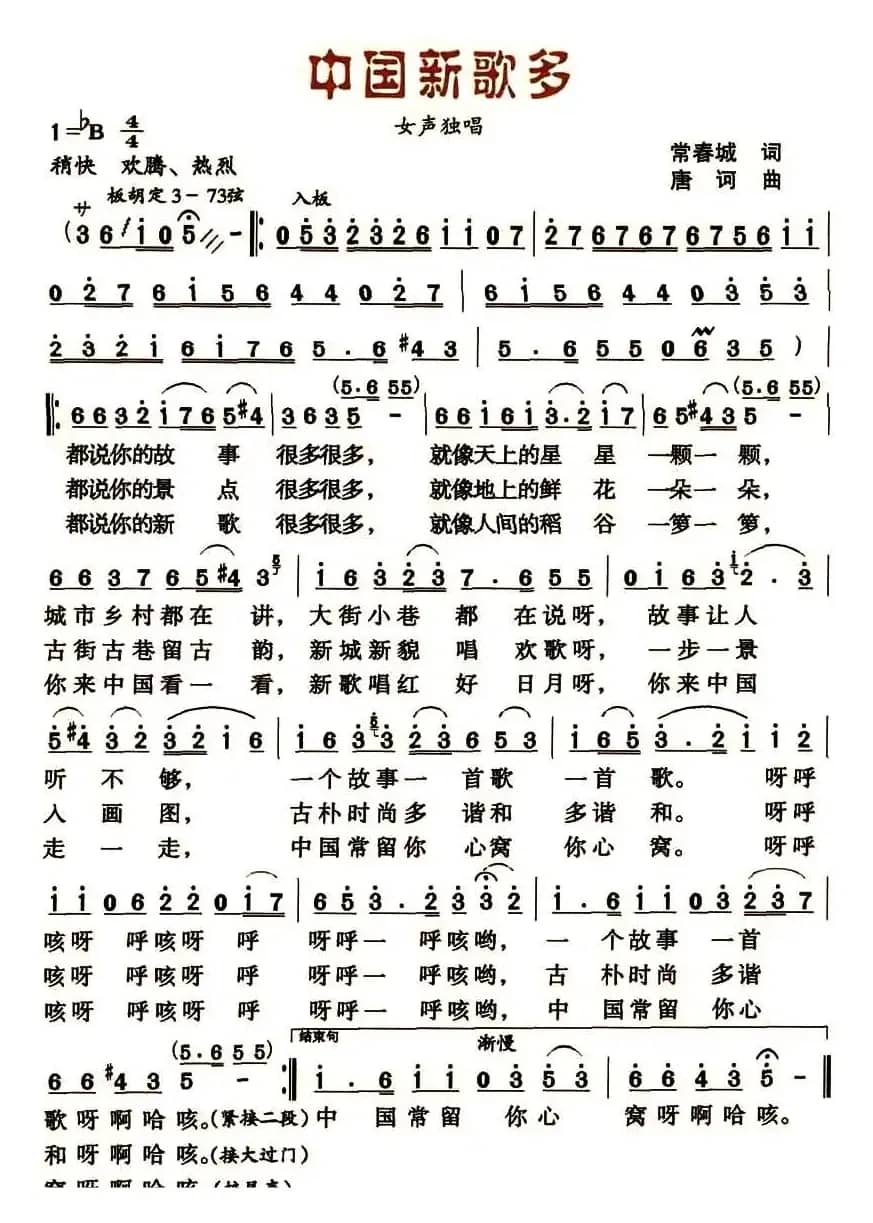 中国新歌多
女声独唱
1=♭B 4/4
常春城 词
稍快 欢腾、热烈
唐 诃 曲
板胡定3-73弦
サ 入板
(3 6 / i 0 5 /// - ‖: 0 5 3 2 3 2 6 i i 0 7 | 2 7 6 7 6 7 6 7 5 6 i i |
0 2 7 6 i 5 6 4 4 0 2 7 | 6 i 5 6 4 4 0 3 5 3 |
2 3 2 i 6 i 7 6 5 . 6 #4 3 | 5 . 6 5 5 0 6 3 5 )
(5 . 6 5 5) (5 . 6 5 5)
‖: 6 6 3 2 i 7 6 5 #4 | 3 6 3 5 - | 6 6 i 6 i 3 . 2 i 7 | 6 5 #4 3 5 - |
都说你的故 事 很多很多, 就像天上的星 星 一颗一颗,
都说你的景 点 很多很多, 就像地上的鲜 花 一朵一朵,
都说你的新 歌 很多很多, 就像人间的稻 谷 一箩一箩,
6 6 3 7 6 5 #4 3 | i 6 3 2 3 7 . 6 5 5 | 0 i 6 3 2 . 3 |
城市乡村都在 讲, 大街小巷 都 在说呀, 故事让人
古街古巷留古 韵, 新城新貌 唱 欢歌呀, 一步一景
你来中国看一 看, 新歌唱红 好 日月呀, 你来中国
5 #4 3 2 3 2 i 6 | i 6 3 3 2 3 6 5 3 | i 6 5 3 . 2 i i 2 |
听 不 够, 一个故事一 首歌 一首 歌。 呀呼
入 画 图, 古朴时尚多 谐和 多谐 和。 呀呼
走 一 走, 中国常留你 心窝 你心 窝。 呀呼
i i 0 6 2 2 0 i 7 | 6 5 3 . 2 3 3 2 | i . 6 i i 0 3 2 3 7 |
咳呀 呼咳呀 呼 呀呼一 呼咳哟, 一 个故事 一首
咳呀 呼咳呀 呼 呀呼一 呼咳哟, 古 朴时尚 多谐
咳呀 呼咳呀 呼 呀呼一 呼咳哟, 中 国常留 你心
(5 . 6 5 5) 结束句 渐慢
6 6 #4 3 5 - :‖ i . 6 i i 0 3 5 3 | 6 6 4 3 5 - ‖
歌呀啊哈咳。(紧接二段) 中 国常留 你心 窝呀啊哈咳。
和呀啊哈咳。(接大过门)